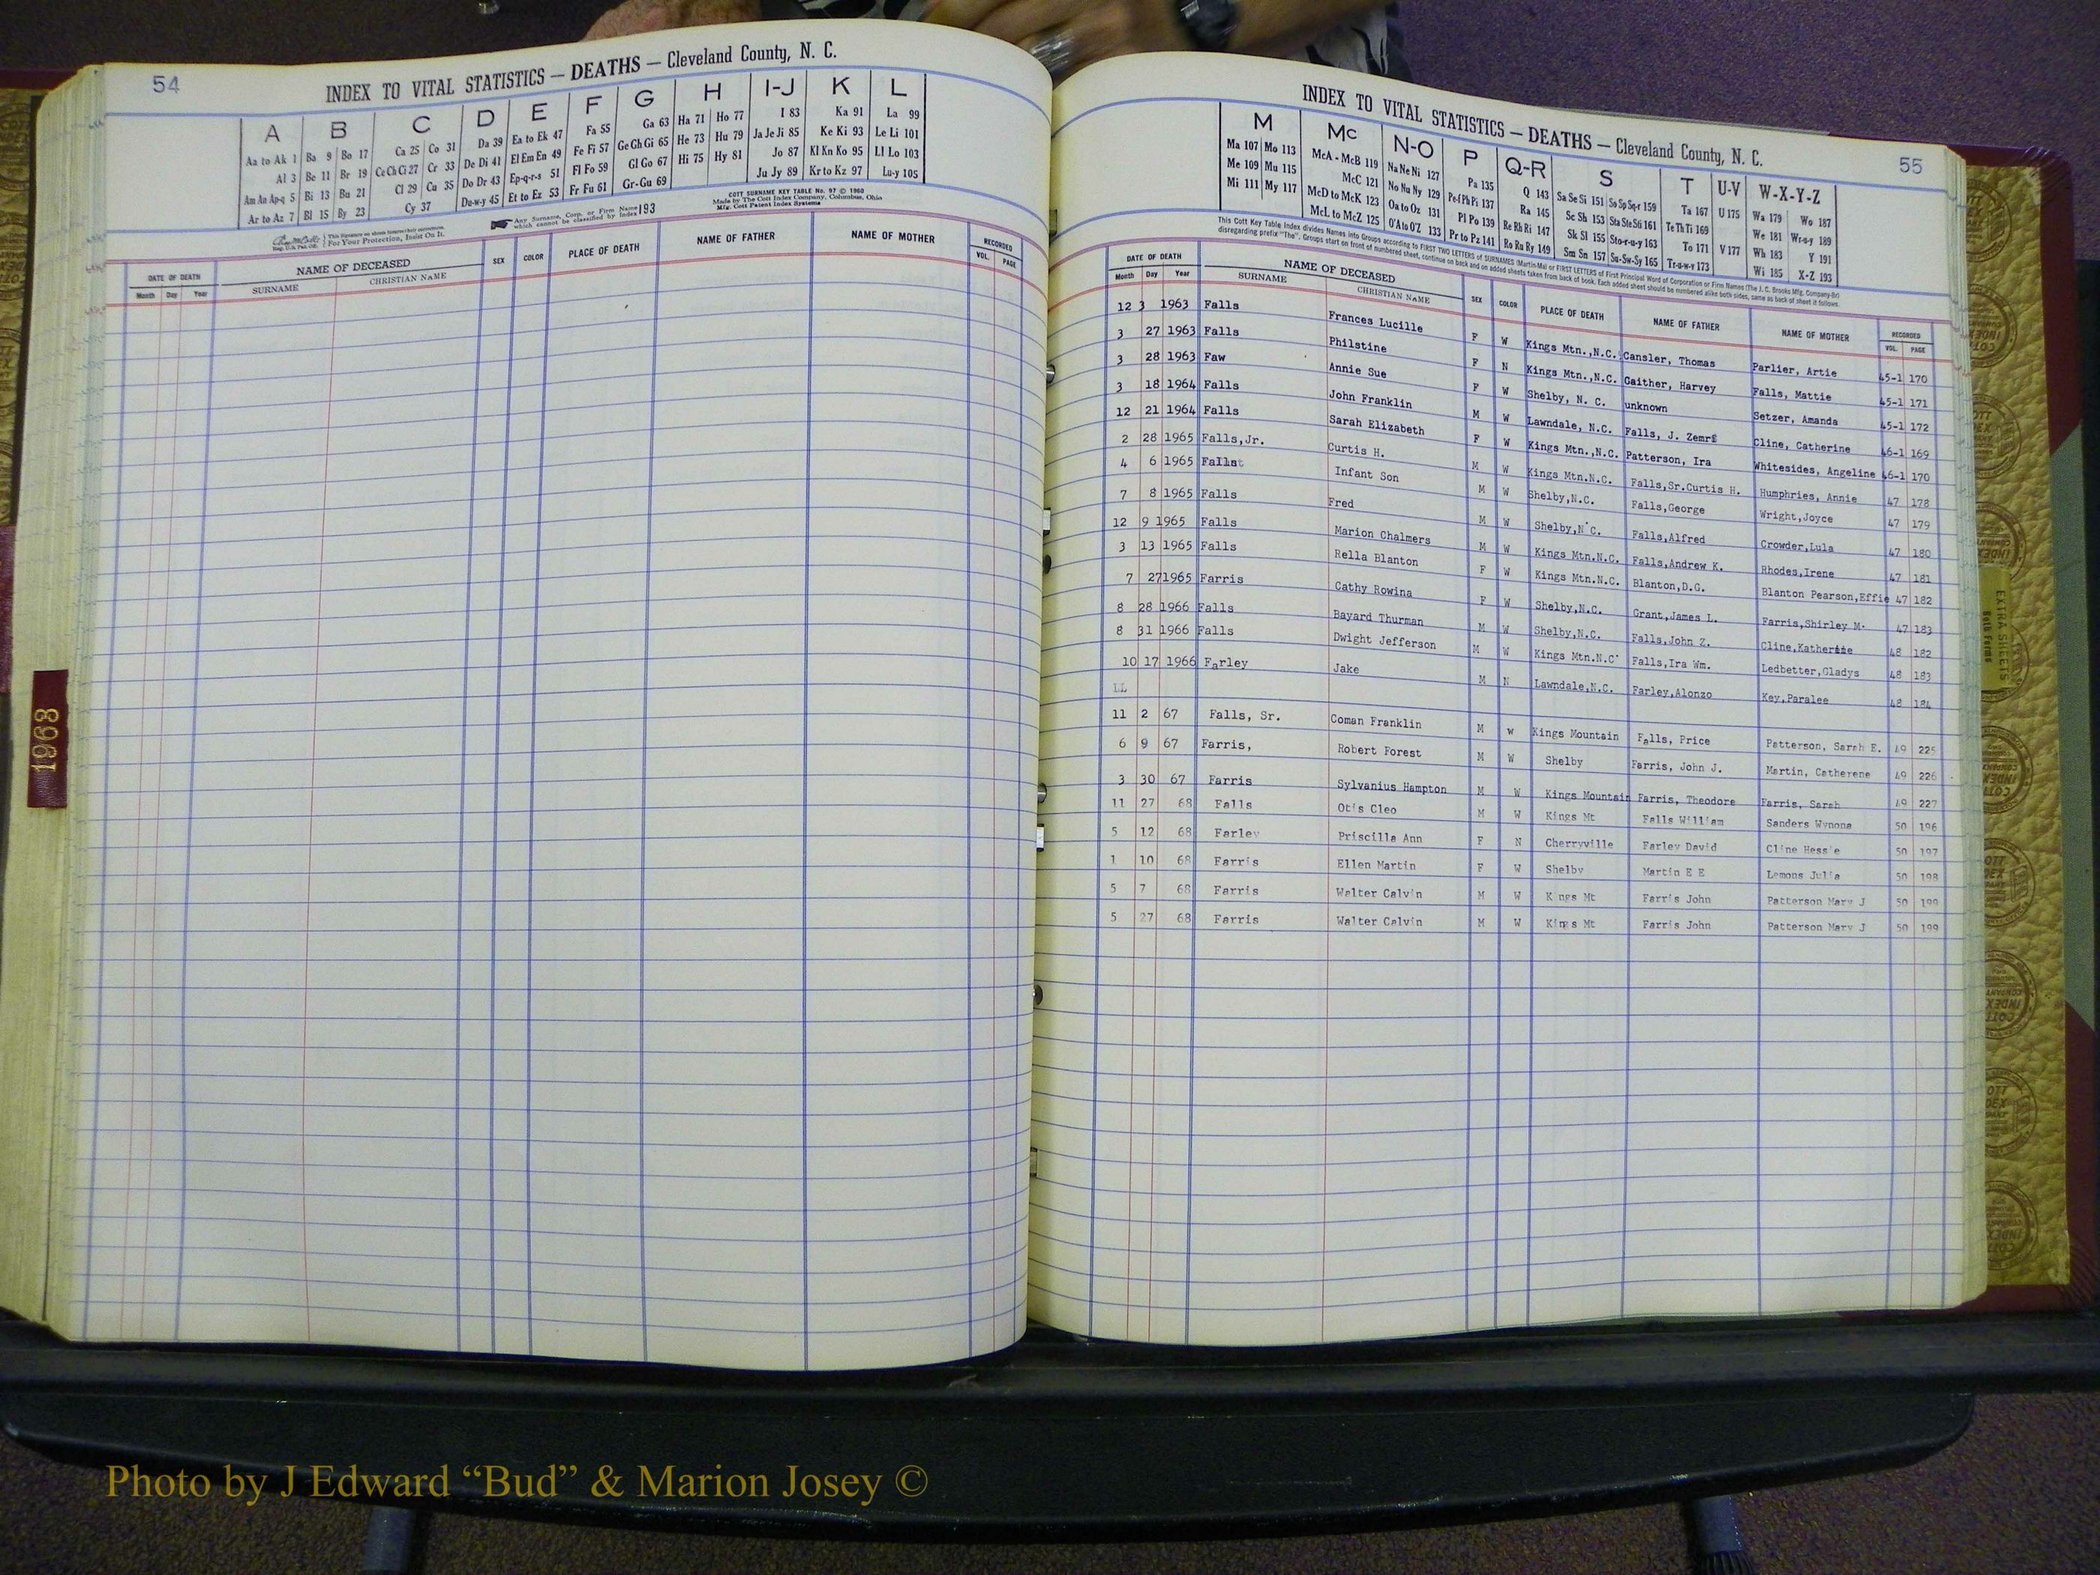 54
INDEX TO VITAL STATISTICS — DEATHS — Cleveland County, N. C.
A B C D E F G H I-J K L
Aa to Ak 1 Ba 9 Bo 17 Ca 25 Co 31 Da 39 Ea to Ek 47 Fa 55 Ga 63 Ha 71 Ho 77 I 83 Ka 91 La 99
Al 3 Be 11 Br 19 Ce Ch Ci 27 Cr 33 De Di 41 El Em En 49 Fe Fi 57 Ge Gh Gi 65 He 73 Hu 79 Ja Je Ji 85 Ke Ki 93 Le Li 101
Am An Ap-q 5 Bi 13 Bu 21 Cl 29 Cu 35 Do Dr 43 Ep-q-r-s 51 Fl Fo 59 Gl Go 67 Hi 75 Hy 81 Jo 87 Kl Kn Ko 95 Ll Lo 103
Ar to Az 7 Bl 15 By 23 Cy 37 Du-w-y 45 Et to Ez 53 Fr Fu 61 Gr-Gu 69 Ju Jy 89 Kr to Kz 97 Lu-y 105
For Your Protection, Insist On It.
Any Surname, Corp. or Firm Name which cannot be classified by Index 193
COTT SURNAME KEY TABLE No. 97 © 1960
Made by The Cott Index Company, Columbus, Ohio
Mfg. Cott Patent Index Systems
DATE OF DEATH NAME OF DECEASED SEX COLOR PLACE OF DEATH NAME OF FATHER NAME OF MOTHER RECORDED
Month Day Year SURNAME CHRISTIAN NAME VOL. PAGE
1968
INDEX TO VITAL STATISTICS — DEATHS — Cleveland County, N. C.
55
M Mc N-O P Q-R S T U-V W-X-Y-Z
Ma 107 Mo 113 McA - McB 119 Na Ne Ni 127 Pa 135 Q 143 Sa Se Si 151 So Sp Sq-r 159 Ta 167 U 175 Wa 179 Wo 187
Me 109 Mu 115 McC 121 No Nu Ny 129 Pe-f Ph Pi 137 Ra 145 Sc Sh 153 Sta Ste Sti 161 Te Th Ti 169 We 181 Wr-u-y 189
Mi 111 My 117 McD to McK 123 Oa to Oz 131 Pl Po 139 Re Rh Ri 147 Sk Sl 155 Sto-r-u-y 163 To 171 V 177 Wh 183 Y 191
McL to McZ 125 O'A to O'Z 133 Pr to Pz 141 Ro Ru Ry 149 Sm Sn 157 Su-Sw-Sy 165 Tr-u-w-y 173 Wi 185 X-Z 193
This Cott Key Table Index divides Names into Groups according to FIRST TWO LETTERS of SURNAMES (Martin-Ma) or FIRST LETTERS of First Principal Word of Corporation or Firm Names (The J. C. Brooks Mfg. Company-Br)
disregarding prefix "The". Groups start on front of numbered sheet, continue on back and on added sheets taken from back of book. Each added sheet should be numbered alike both sides, same as back of sheet it follows.
DATE OF DEATH NAME OF DECEASED SEX COLOR PLACE OF DEATH NAME OF FATHER NAME OF MOTHER RECORDED
Month Day Year SURNAME CHRISTIAN NAME VOL. PAGE
12 3 1963 Falls Frances Lucille F W Kings Mtn.,N.C. Cansler, Thomas Parlier, Artie 45-1 170
3 27 1963 Falls Philstine F N Kings Mtn.,N.C. Gaither, Harvey Falls, Mattie 45-1 171
3 28 1963 Faw Annie Sue F W Shelby, N. C. unknown Setzer, Amanda 45-1 172
3 18 1964 Falls John Franklin M W Lawndale, N.C. Falls, J. Cline, Catherine 46-1 169
12 21 1964 Falls Sarah Elizabeth F W Kings Mtn.,N.C. Patterson, Ira Whitesides, Angeline 46-1 170
2 28 1965 Falls,Jr. Curtis H. M W Kings Mtn.N.C. Falls,Sr.Curtis H. Humphries, Annie 47 178
4 6 1965 Falls Infant Son M W Shelby,N.C. Falls,George Wright,Joyce 47 179
7 8 1965 Falls Fred M W Shelby,N.C. Falls,Alfred Crowder,Lula 47 180
12 9 1965 Falls Marion Chalmers M W Kings Mtn.N.C. Falls,Andrew K. Rhodes,Irene 47 181
3 13 1965 Falls Rella Blanton F W Kings Mtn.N.C. Blanton,D.G. Blanton Pearson,Effie 47 182
7 27 1965 Farris Cathy Rowina F W Shelby,N.C. Grant,James L. Farris,Shirley M. 47 183
8 28 1966 Falls Bayard Thurman M W Shelby,N.C. Falls,John Z. Cline,Katherine 48 182
8 31 1966 Falls Dwight Jefferson M W Kings Mtn.N.C' Falls,Ira Wm. Ledbetter,Gladys 48 183
10 17 1966 Farley Jake M N Lawndale,N.C. Farley,Alonzo Key,Paralee 48 184
LL
11 2 67 Falls, Sr. Coman Franklin M W Kings Mountain Falls, Price Patterson, Sarah E. 49 225
6 9 67 Farris, Robert Forest M W Shelby Farris, John J. Martin, Catherene 49 226
3 30 67 Farris Sylvanius Hampton M W Kings Mountain Farris, Theodore Farris, Sarah 49 227
11 27 68 Falls Otis Cleo M W Kings Mt Falls William Sanders Wynona 50 196
5 12 68 Farley Priscilla Ann F N Cherryville Farley David Cline Hessie 50 197
1 10 68 Farris Ellen Martin F W Shelby Martin E E Lemons Julia 50 198
5 7 68 Farris Walter Calvin M W Kings Mt Farris John Patterson Mary J 50 199
5 27 68 Farris Walter Calvin M W Kings Mt Farris John Patterson Mary J 50 199
EXTRA SHEETS
Both Forms
Photo by J Edward “Bud” & Marion Josey ©